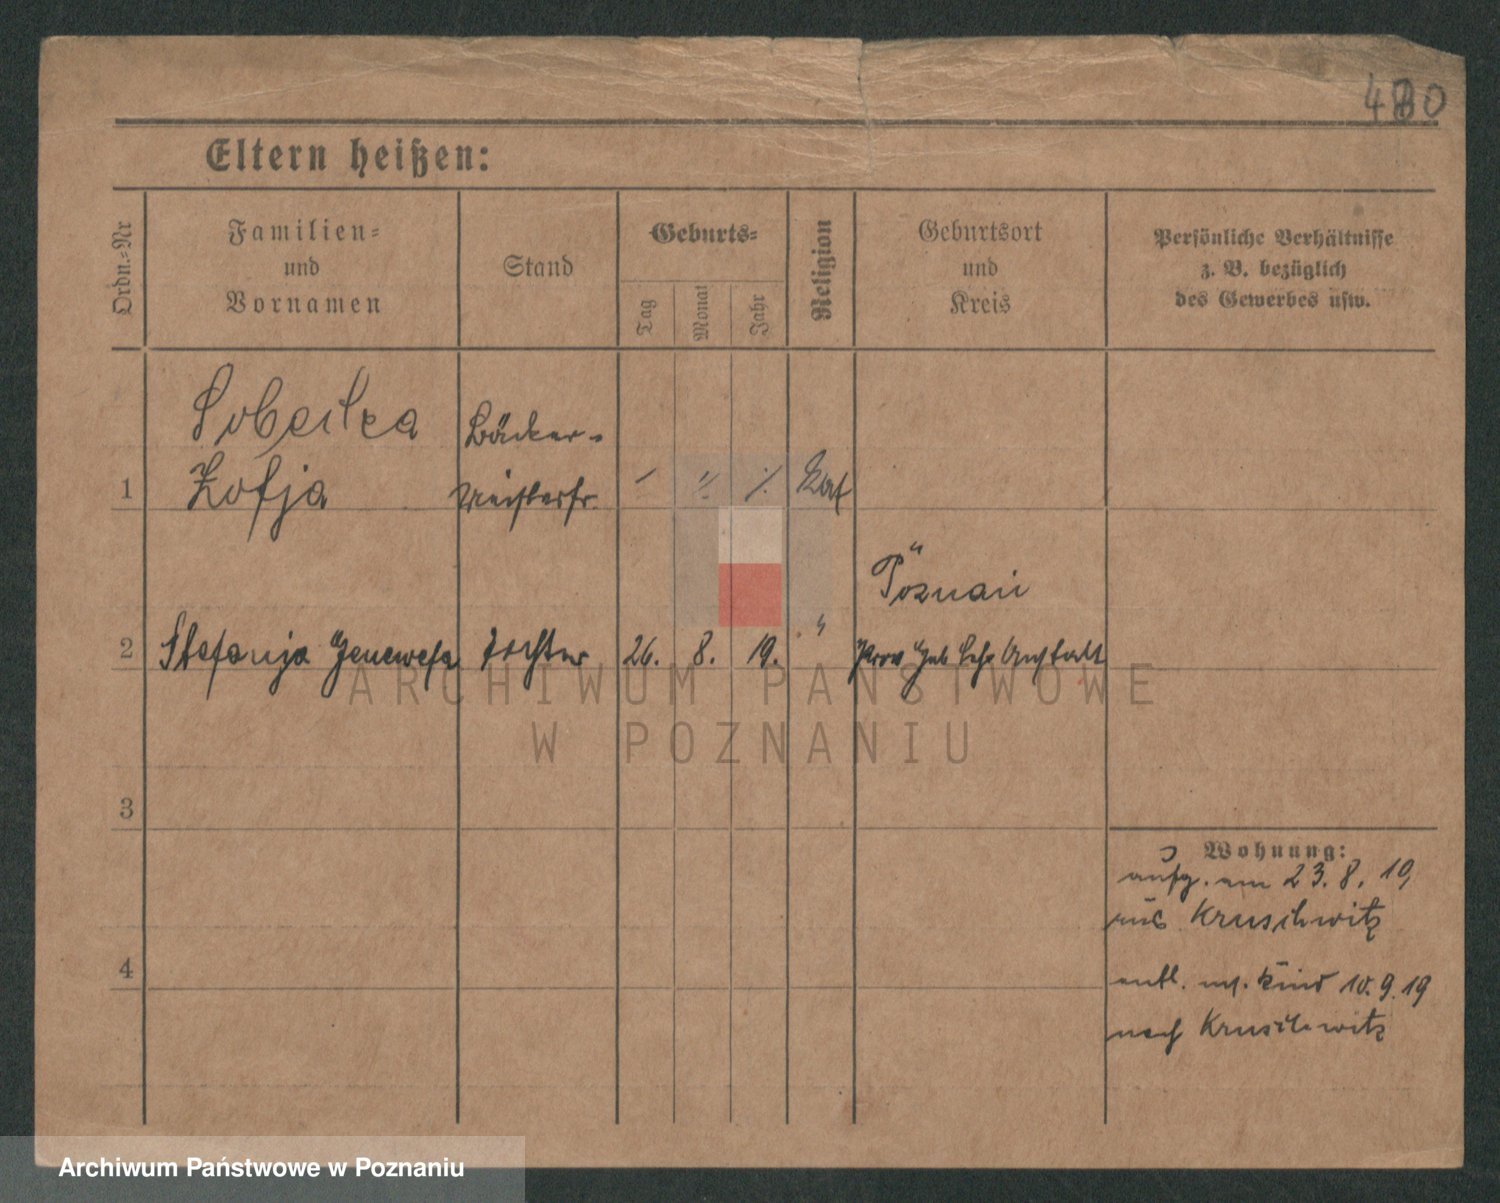 480
Eltern heißen:
Ordn.-Nr
Familien-
und
Vornamen
Stand
Geburts-
Tag
Monat
Jahr
Religion
Geburtsort
und
Kreis
Persönliche Verhältnisse
z. B. bezüglich
des Gewerbes usw.
Zofja
Bäcker-
1
Meisterfr.
Kat
Poznań
2 Stefanja Genewefa Tochter 26. 8. 19. " Prov Heb Lehr Anstalt
ARCHIWUM PAŃSTWOWE
W POZNANIU
3
Wohnung:
aufg. am 23. 8. 19
aus Kruschwitz
4
entl. m. Kind 10. 9. 19
nach Kruschwitz
Archiwum Państwowe w Poznaniu